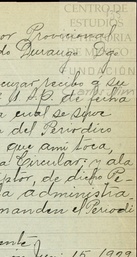 CENTRO DE
ESTUDIOS
or Provisional
do Durango, Dgo
FUNDACIÓN
cusar recibo a Su
de fecha
a cual se sirve
del Periodico
que ami toca,
a Circular, y ala
ptor, de dicho Pe
la administra
manden el Periodi
ente
15, 1929